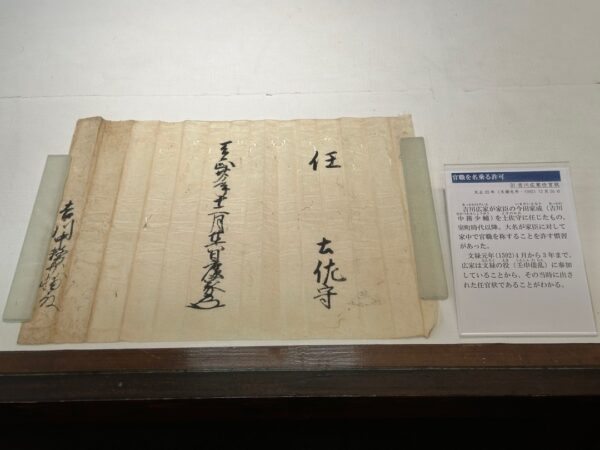 任 土佐守
天正廿年十二月廿六日 廣家
吉川中務少輔殿
官職を名乗る許可
吉川広家任官状
天正20年(文禄元年・1592)12月26日
吉川広家が家臣の今田家成(吉川
中務少輔)を土佐守に任じたもの。
室町時代以降、大名が家臣に対して
家中で官職を称することを許す慣習
があった。
文禄元年(1592)4月から3年まで、
広家は文禄の役(壬申倭乱)に参加
していることから、その当時に出さ
れた任官状であることがわかる。